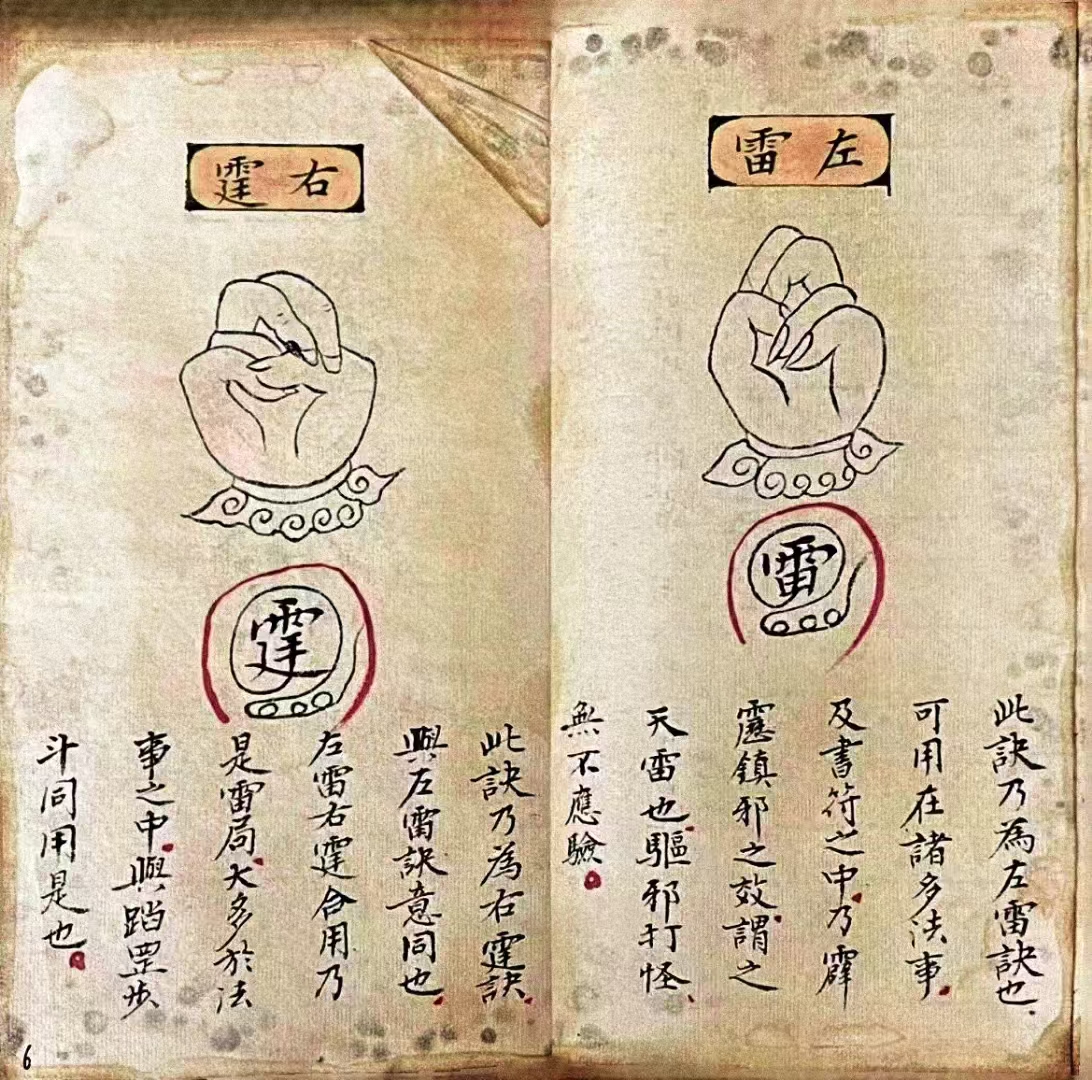 左雷
雷
此訣乃為左雷訣也.
可用在諸多法事.
及書符之中.乃霹
靂鎮邪之效.謂之
天雷也.驅邪打怪.
無不應驗。
右霆
霆
此訣乃為右霆訣.
與左雷訣意同也.
左雷右霆合用乃
是雷局.大多於法
事之中.與踏罡步
斗同用是也。
6